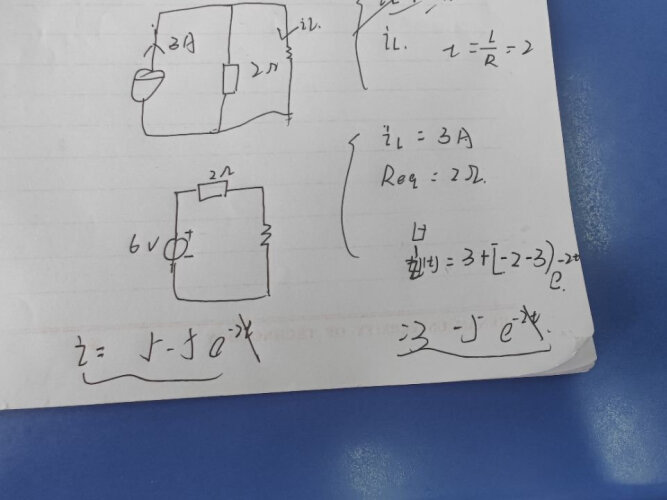 3A
2Ω
iL.
iL.
τ = L/R = 2
iL = 3A
Req = 2Ω.
2Ω
6V
+
-
(t) = 3 + [-2-3) e^-2t.
i = 5 - 5 e^-2t
= 3 - 5 e^-2t.